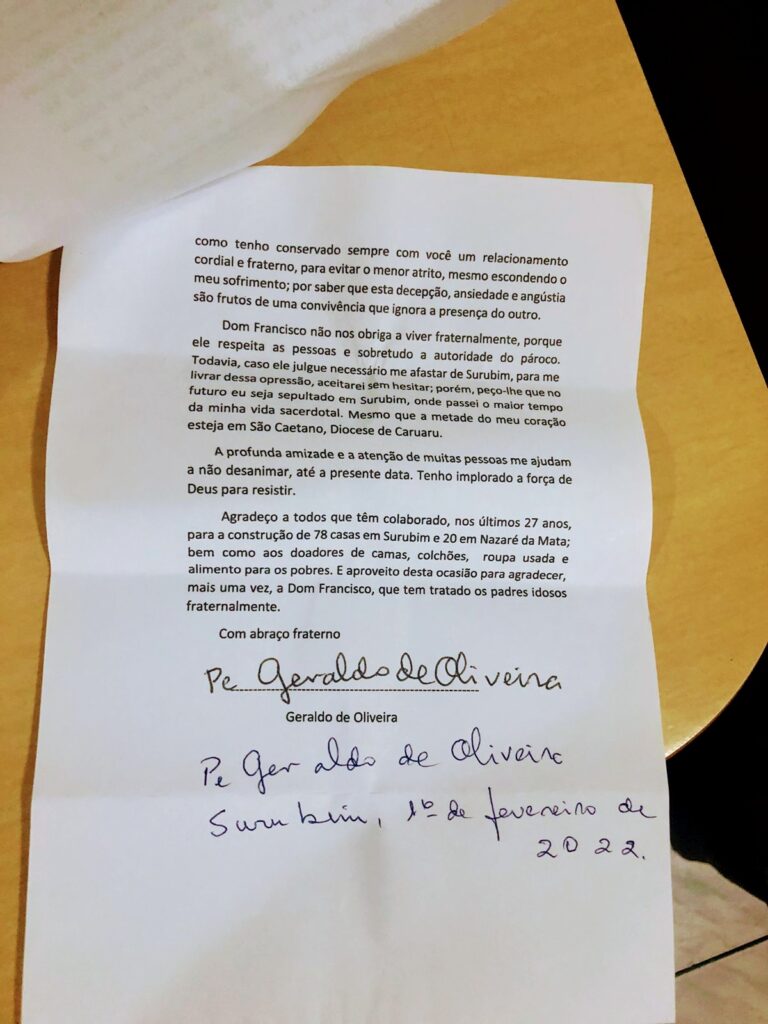 como tenho conservado sempre com você um relacionamento
cordial e fraterno, para evitar o menor atrito, mesmo escondendo o
meu sofrimento; por saber que esta decepção, ansiedade e angústia
são frutos de uma convivência que ignora a presença do outro.
Dom Francisco não nos obriga a viver fraternalmente, porque
ele respeita as pessoas e sobretudo a autoridade do pároco.
Todavia, caso ele julgue necessário me afastar de Surubim, para me
livrar dessa opressão, aceitarei sem hesitar; porém, peço-lhe que no
futuro eu seja sepultado em Surubim, onde passei o maior tempo
da minha vida sacerdotal. Mesmo que a metade do meu coração
esteja em São Caetano, Diocese de Caruaru.
A profunda amizade e a atenção de muitas pessoas me ajudam
a não desanimar, até a presente data. Tenho implorado a força de
Deus para resistir.
Agradeço a todos que têm colaborado, nos últimos 27 anos,
para a construção de 78 casas em Surubim e 20 em Nazaré da Mata;
bem como aos doadores de camas, colchões, roupa usada e
alimento para os pobres. E aproveito desta ocasião para agradecer,
mais uma vez, a Dom Francisco, que tem tratado os padres idosos
fraternalmente.
Com abraço fraterno
Pe Geraldo de Oliveira
Geraldo de Oliveira
Pe Geraldo de Oliveira
Surubim, 1º de fevereiro de
2022.